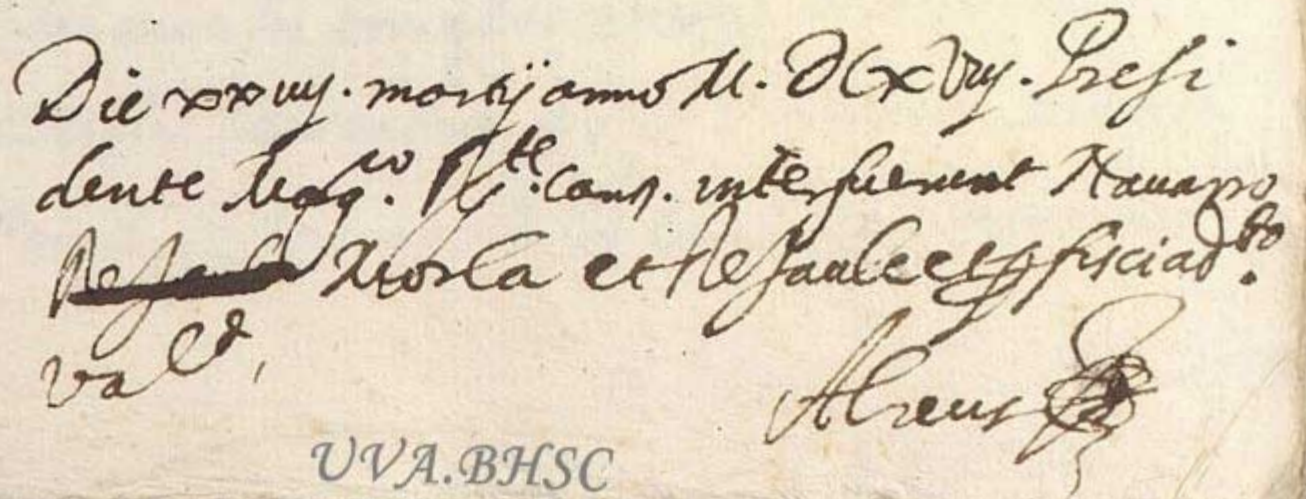 Die xxviiij. martij anno M. DCxviij. Presi
dente Mag.co R.te Canz. interfuerunt Nauarro
Morla et Resaule et p fisci ad.to
vald,
Alreus
UVA.BHSC